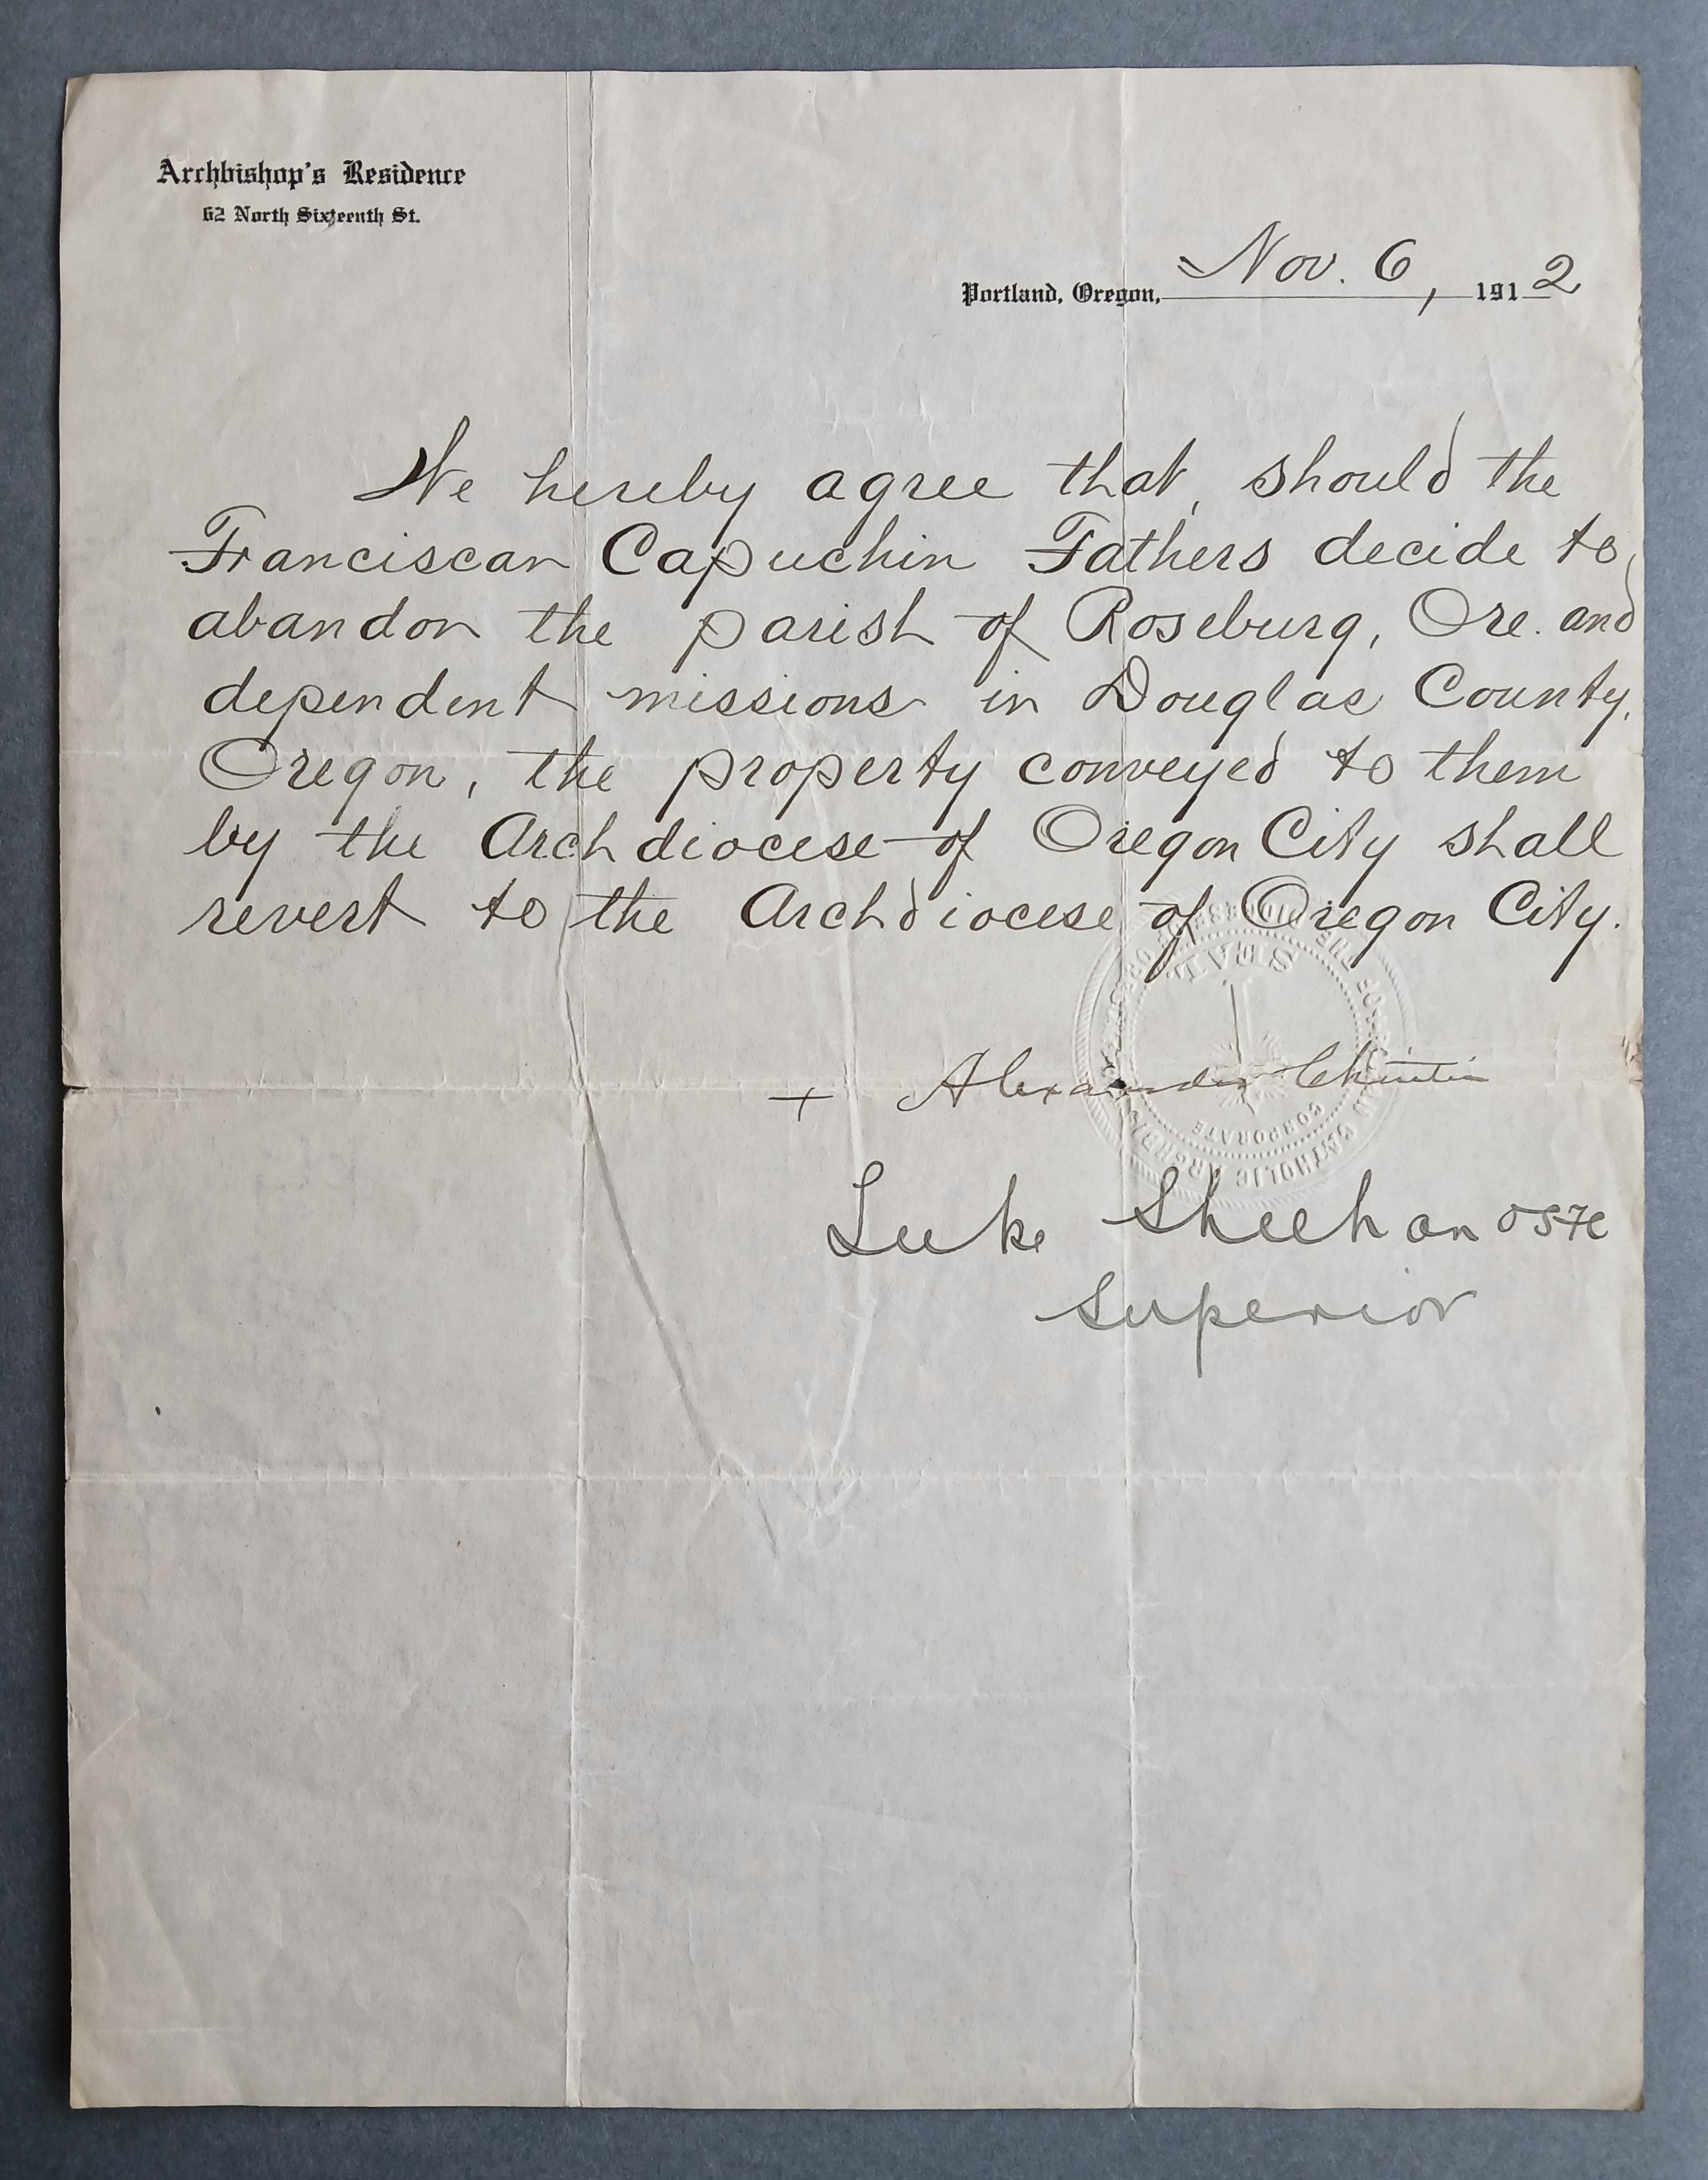 Archbishop's Residence
62 North Sixteenth St.
Portland, Oregon, Nov. 6, 1912
We hereby agree that, should the
Franciscan Capuchin Fathers decide to
abandon the parish of Roseburg, Ore. and
dependent missions in Douglas County,
Oregon, the property conveyed to them
by the Archdiocese of Oregon City shall
revert to the Archdiocese of Oregon City.
SEAL
CORPORATE
+ Alexander Christie
Luke Sheehan OSFC
Superior